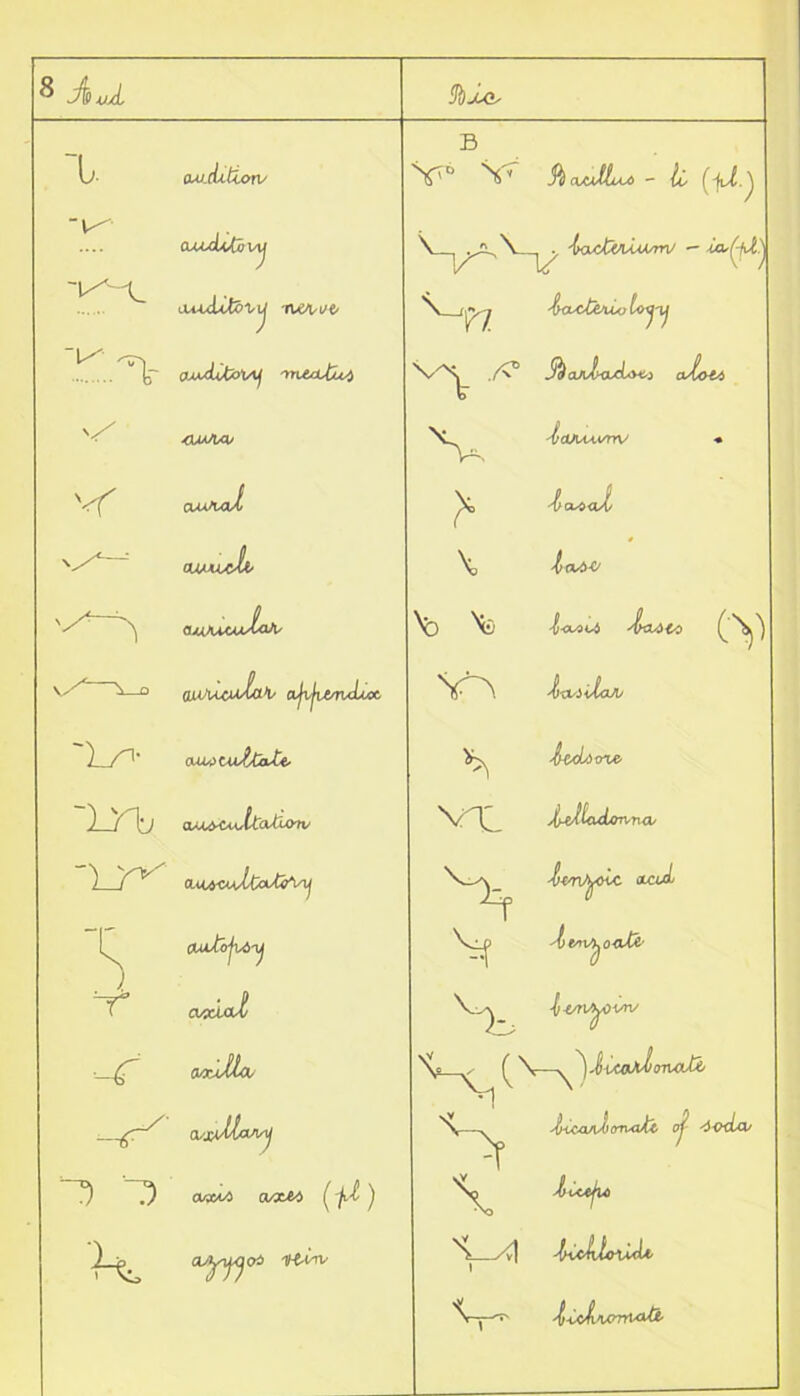 8 Aud
audition
auditory
auditory nerve
auditory meatus
aura
aural
auricle
auricular
auricular appendix
auscultate
auscultation
auscultatory
autopsy
axial
axilla
axillary
axis axes (pl)
azygos vein
Bic
B
Bacillus - li (pl.)
bacterium - ia (pl.)
bacteriology
Barbadoes aloes
barium
basal
base
basis bases
basilar
bedsore
belladonna
benzoic acid
benzoate
benzoin
bicarbonate
bicarbonate of soda
biceps
bichloride
bichromate